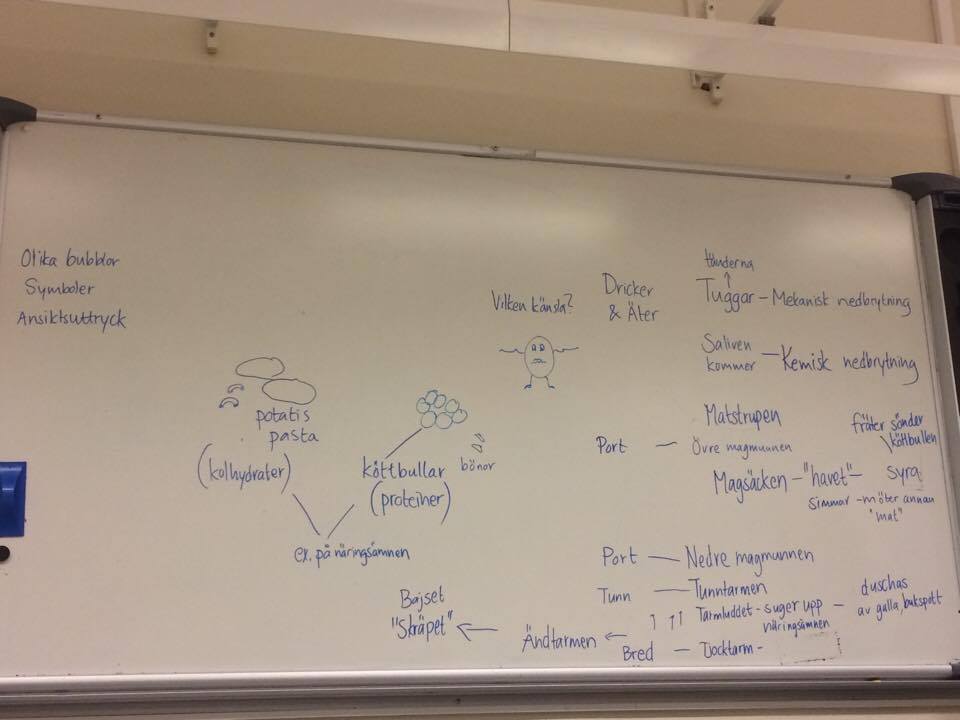 Olika bubblor
Symboler
Ansiktsuttryck
potatis
pasta
(kolhydrater)
köttbullar
(proteiner)
bönor
ex. på näringsämnen
Vilken känsla?
Dricker
& Äter
tänderna
↑
Tuggar – Mekanisk nedbrytning
Saliven
kommer – Kemisk nedbrytning
Matstrupen
Port – Övre magmunnen
fräter sönder
köttbullen
Magsäcken – "havet" – syra
simmar – möter annan
"mat"
Port – Nedre magmunnen
Tunn – Tunntarmen
Tarmluddet – suger upp – duschas
näringsämnen av galla, bukspott
Bred – Tjocktarm –
Ändtarmen ←
Bajset
"Skräpet" ←